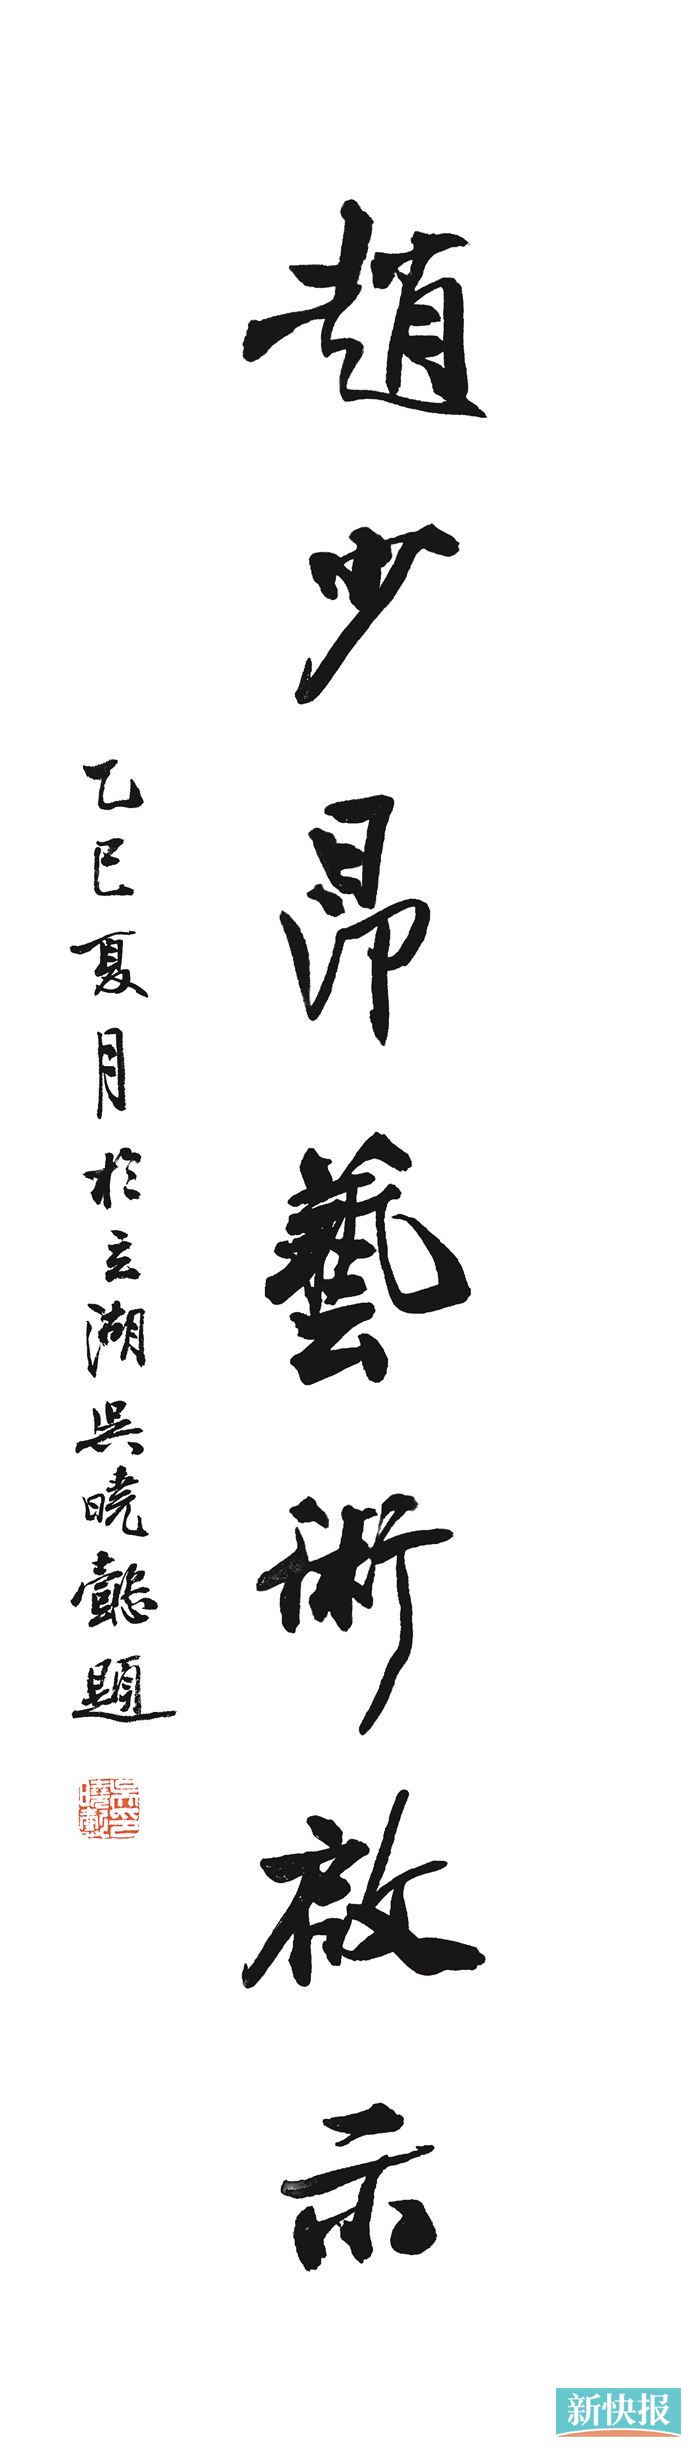 趙少昂藝術啟示
乙巳夏月於立湖吳曉懿題
吳曉懿印
新快报